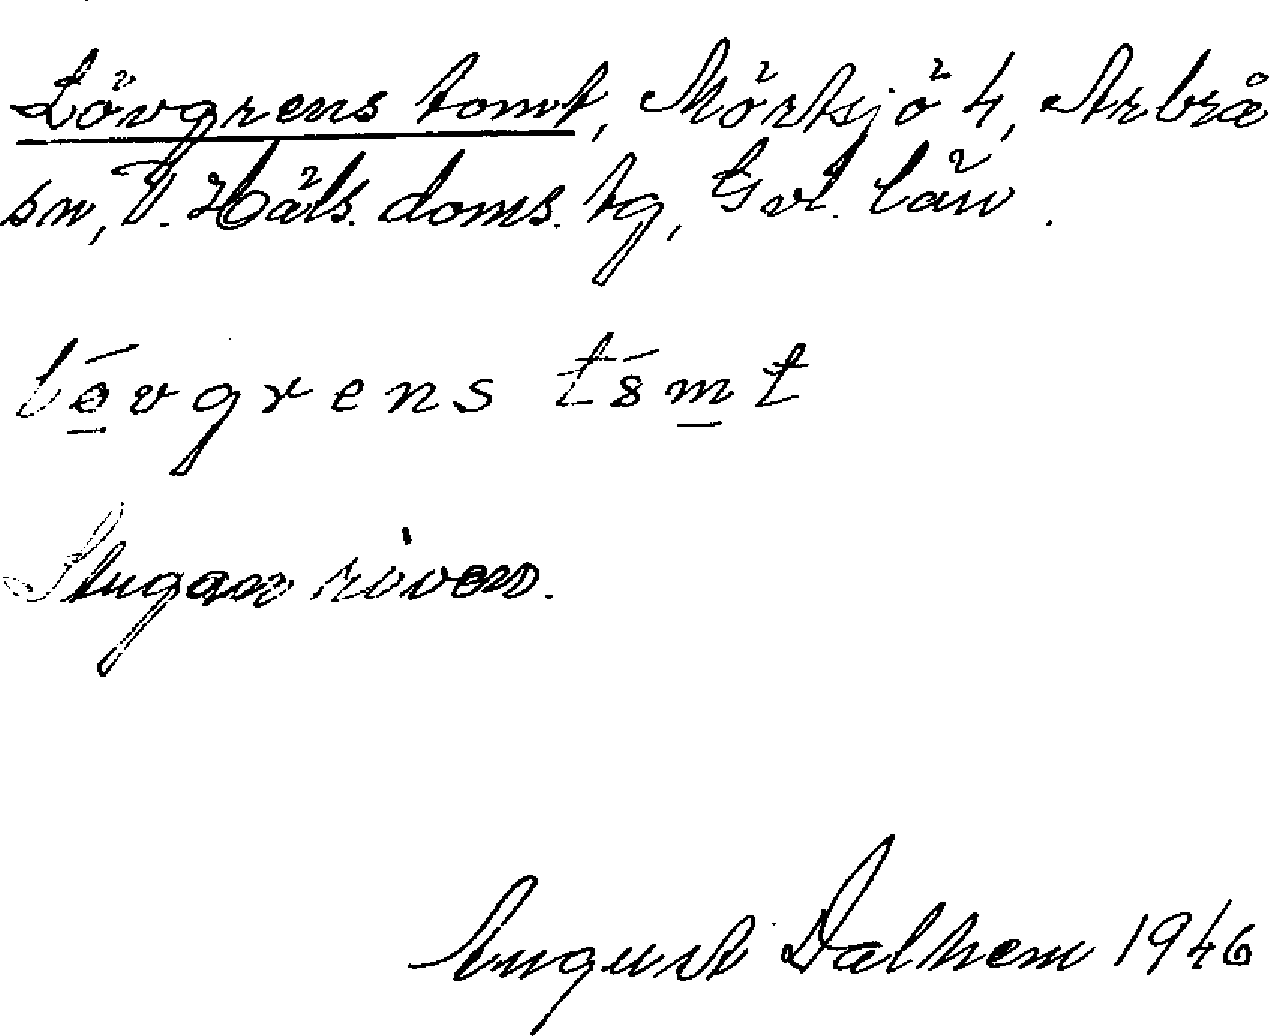 Lövgrens tomt, Mörtsjö 4, Arbrå
sn, V. Häls. doms. tg, Gvl. län.
lövgrens tomt
Stugan riven.
August Dalhem 1946